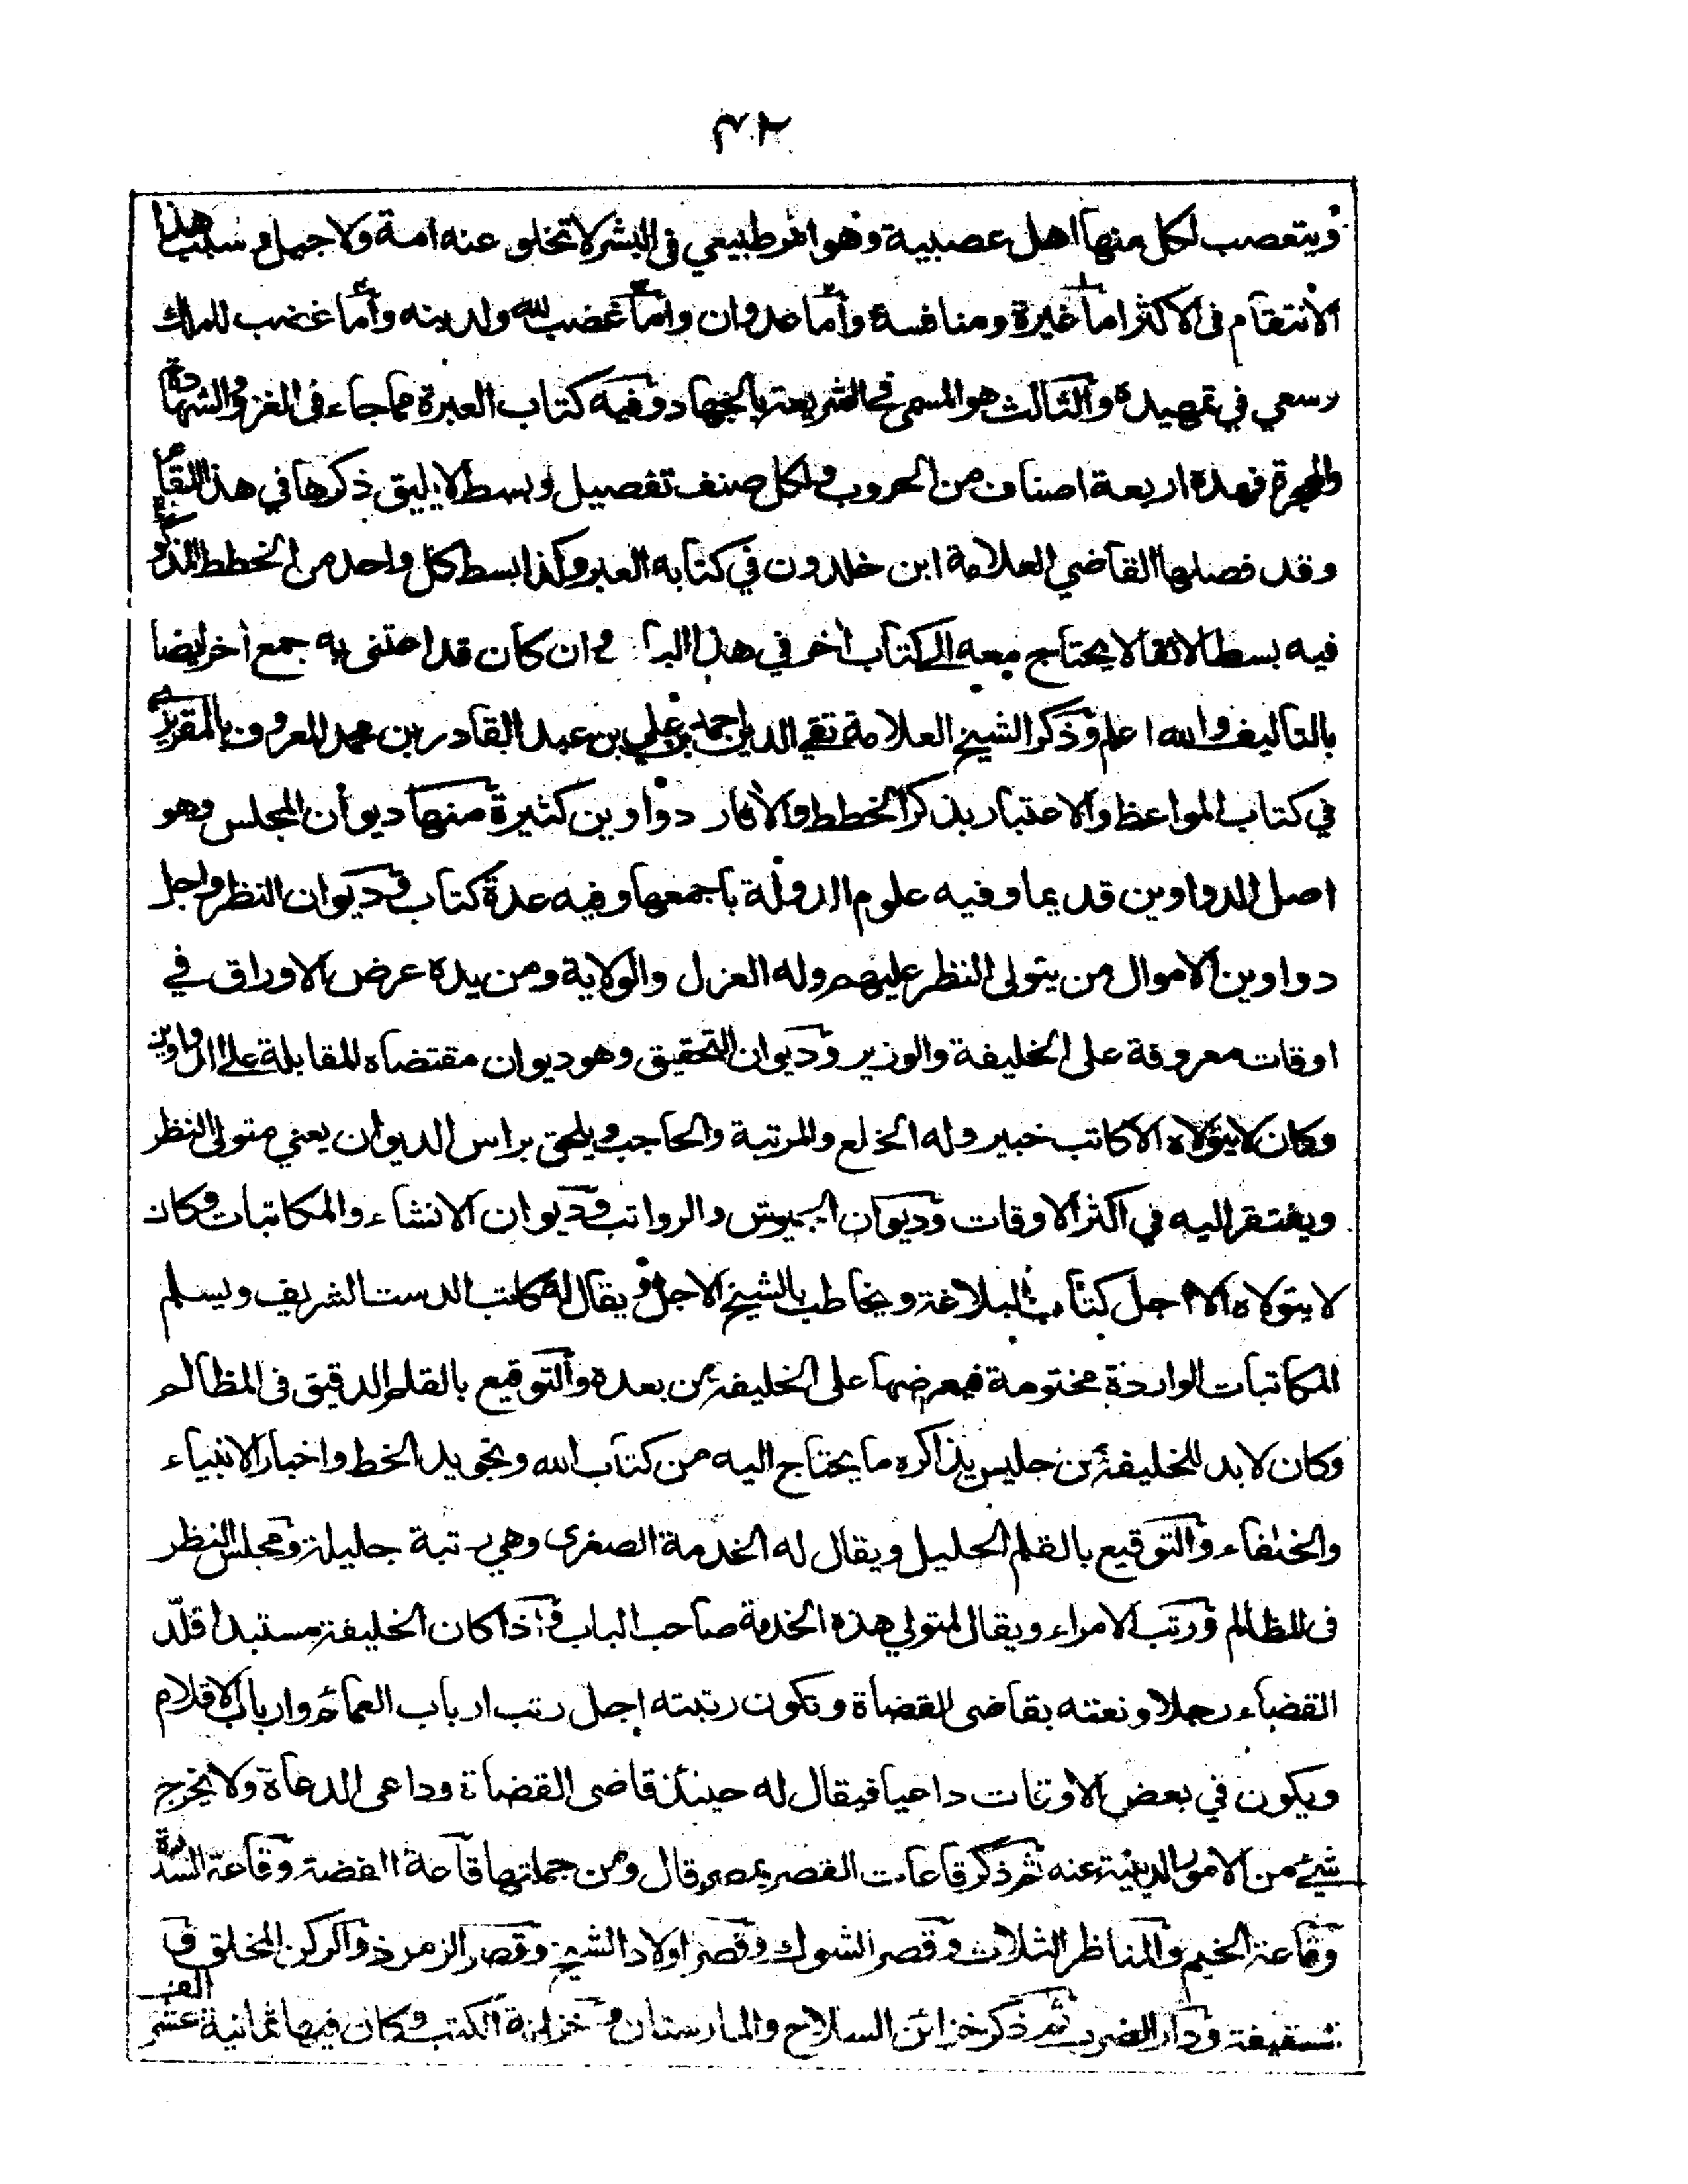 ٣٠٢
ويتعصب لكل منها اهل عصبية وهو امر طبيعي فى البشر لا تخلو عنه امة ولا جيل وسبب هذا
الانتقام فى الاكثر اما غيرة ومنافسة واما عدوان واما غضب لله ولدينه واما غضب للملك
وسعي في تمهيده والثالث هو المسمى فى الشريعة بالجهاد وفيه كتاب العبرة مما جاء فى الغزو والشهادة
والهجرة فهذه اربعة اصناف من الحروب ولكل صنف تفصيل وبسط لا يليق ذكرها في هذا المقام
وقد فصلها القاضي العلامة ابن خلدون في كتابه العبر وكذا بسط كل واحد من الخطط المذكورة
فيه بسطا لائقا لا يحتاج معه الى كتاب اخر في هذا الباب وان كان قد اعتنى به جمع اخر ايضا
بالتاليف والله اعلم وذكر الشيخ العلامة تقي الدين احمد بن علي بن عبد القادر بن محمد المعروف بالمقريزي
في كتاب المواعظ والاعتبار بذكر الخطط والاثار دواوين كثيرة منها ديوان المجلس وهو
اصل الدواوين قديما وفيه علوم الدولة باجمعها وفيه عدة كتاب وديوان النظر واجل
دواوين الاموال من يتولى النظر عليهم وله العزل والولاية ومن يده عرض الاوراق في
اوقات معروفة على الخليفة والوزير وديوان التحقيق وهو ديوان مقتضاه المقابلة على الدواوين
وكان لا يتولاه الا كاتب خبير وله الخلع والمرتبة والحاجب ويلحق براس الديوان يعني متولى النظر
ويفتقر اليه في اكثر الاوقات وديوان الجيوش والرواتب وديوان الانشاء والمكاتبات وكان
لا يتولاه الا اجل كتاب البلاغة ويخاطب بالشيخ الاجل ويقال له كاتب الدست الشريف ويسلم
المكاتبات الواردة مختومة فيعرضها على الخليفة من بعده والتوقيع بالقلم الدقيق فى المظالم
وكان لا بد للخليفة من جليس يذاكره ما يحتاج اليه من كتاب الله وتجويد الخط واخبار الانبياء
والخلفاء والتوقيع بالقلم الجليل ويقال له الخدمة الصغرى وهي رتبة جليلة ومجلس النظر
فى المظالم ورتب الامراء ويقال لمتولي هذه الخدمة صاحب الباب واذا كان الخليفة مستبدا قلّد
القضاء رجلا ونعته بقاضى القضاة وتكون رتبته اجل رتب ارباب العمائم وارباب الاقلام
ويكون في بعض الاوقات داعيا فيقال له حينئذ قاضى القضاة وداعى الدعاة ولا يخرج
شيئ من الامور الدينية عنه ثم ذكر قاعات القصر بمصر قال ومن جملتها قاعة الفضة وقاعة السدرة
وقاعة الخيم والمناظر الثلاث وقصر الشوك وقصر اولاد الشيخ وقصر الزمرذ والركن المخلق و
سقيفة ودار الضرب ثم ذكر خزائن السلاح والمارستان وخزانة الكتب وكان فيها ثمانية عشر الف